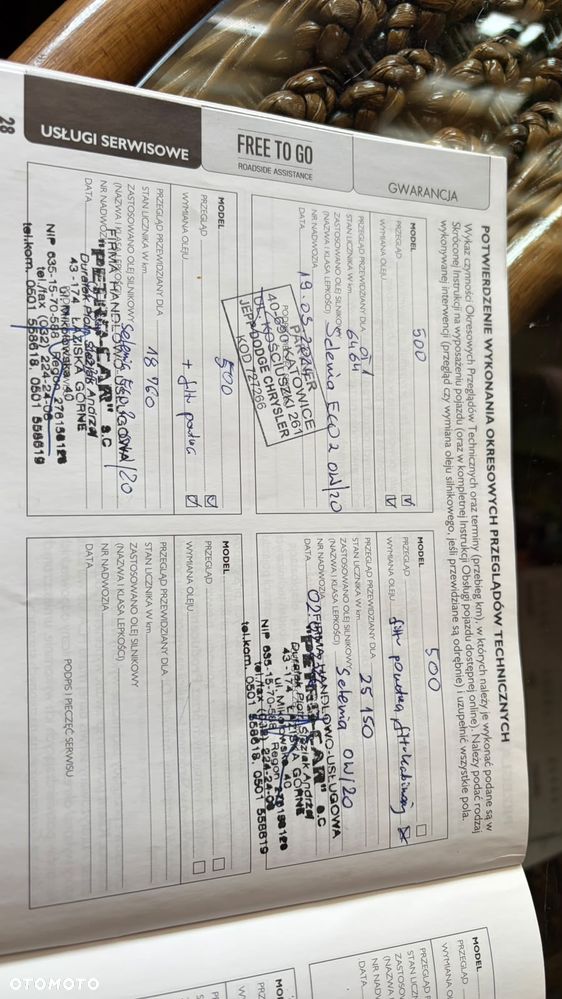 USŁUGI SERWISOWE
FREE TO GO
ROADSIDE ASSISTANCE
GWARANCJA
POTWIERDZENIE WYKONANIA OKRESOWYCH PRZEGLĄDÓW TECHNICZNYCH
Wykaz czynności Okresowych Przeglądów Technicznych oraz terminy (przebieg km), w których należy je wykonać podane są w
Skróconej Instrukcji na wyposażeniu pojazdu (oraz w kompletnej Instrukcji Obsługi pojazdu dostępnej online). Należy podać rodzaj
wykonywanej interwencji (przegląd czy wymiana oleju silnikowego, jeśli przewidziane są odrębnie) i uzupełnić wszystkie pola.
MODEL 500
PRZEGLĄD
WYMIANA OLEJU
PRZEGLĄD PRZEWIDZIANY DLA
STAN LICZNIKA W km 6464
ZASTOSOWANO OLEJ SILNIKOWY
(NAZWA I KLASA LEPKOŚCI) Selenia ECO2 0W/20
NR NADWOZIA
DATA 19.03.
PARTNER
40-690 KATOWICE
UL. KOŚCIUSZKI 261
JEEP DODGE CHRYSLER
KOD 7247266
MODEL 500
PRZEGLĄD
WYMIANA OLEJU filtr powietrza, filtr kabinowy
PRZEGLĄD PRZEWIDZIANY DLA
STAN LICZNIKA W km 25 150
ZASTOSOWANO OLEJ SILNIKOWY
(NAZWA I KLASA LEPKOŚCI) Selenia 0W/20
NR NADWOZIA
DATA 02.
FIRMA HANDLOWO-USŁUGOWA
"PETRO-CAR" s.c
43-174 ŁAZISKA GÓRNE
ul. Mikołowska 40
NIP 635-15-70-558 Regon 276158129
tel./fax (032) 224-24-06
tel.kom. 0501 558618, 0501 558619
MODEL 500
PRZEGLĄD
WYMIANA OLEJU
PRZEGLĄD PRZEWIDZIANY DLA
STAN LICZNIKA W km 18 760
ZASTOSOWANO OLEJ SILNIKOWY
(NAZWA I KLASA LEPKOŚCI)
NR NADWOZIA
DATA
FIRMA HANDLOWO-USŁUGOWA
"PETRO-CAR" s.c
43-174 ŁAZISKA GÓRNE
ul. Mikołowska 40
NIP 635-15-70-558 Regon 276158129
tel./fax (032) 224-24-06
tel.kom. 0501 558618, 0501 558619
MODEL
PRZEGLĄD
WYMIANA OLEJU
PRZEGLĄD PRZEWIDZIANY DLA
STAN LICZNIKA W km
ZASTOSOWANO OLEJ SILNIKOWY
(NAZWA I KLASA LEPKOŚCI)
NR NADWOZIA
DATA
PODPIS I PIECZĘĆ SERWISU
28
MODEL
PRZEGLĄD
WYMIANA
PRZEGLĄD
STAN LIC
ZASTOSO
(NAZWA
NR NAD
DATA
OTOMOTO